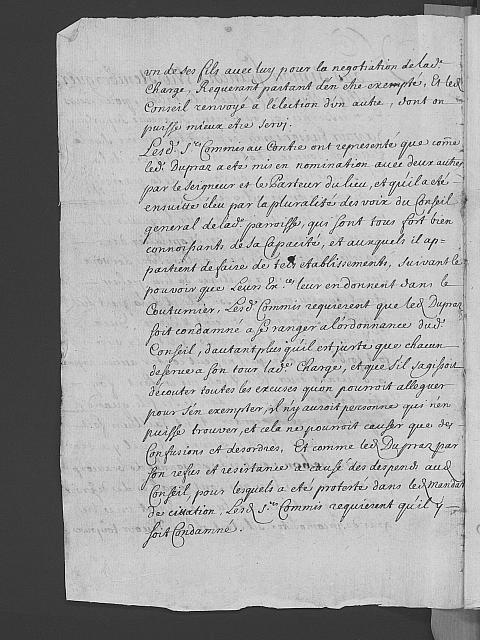 un de ses fils avec luy pour la negotiation de lad.e
Charge, Requerant partant d'en etre exempté, Et led.
Conseil renvoyé a l'election d'un autre, dont on
puisse mieux etre servi.
Lesd. S.rs Commis au Contre ont representé que come
led. Dupraz a eté mis en nomination avec deux autres
par le Seigneur et le Pasteur du lieu, et qu'il a eté
ensuitte éleu par la pluralité des voix du Conseil
general de lad.e parroisse, qui sont tous fort bien
connoissants de sa Capacité, et auxquels il ap-
partient de faire de tels etablissements, suivant le
pouvoir que Leurs Ex.ces leur en donnent dans le
Coutumier, Lesd. Commis requierent que led. Dupraz
soit condamné a se ranger a l'ordonnance dud.
Conseil, d'autant plus qu'il est juste que chacun
deserve a son tour lad.e Charge, et que s'il s'agissoit
d'ecouter toutes les excuses qu'on pourroit alleguer
pour s'en exempter, il n'y auroit personne qui n'en
puisse trouver, et cela ne pourroit causer que des
Confusions et desordres, Et comme led. Dupraz par
son refus et resistance a causé des despends aud.
Conseil, pour lesquels a eté protesté dans led. mandat
de citation, Lesd. S.rs Commis requierent qu'il y
soit Condamné.